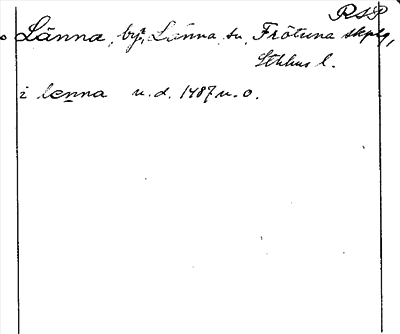 RSP
Länna, by, Länna sn, Frötuna skplg,
Sthlms l.
i lenna u.d. 1487 u.o.